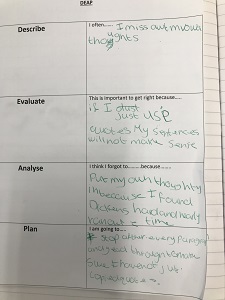 DEAP
Describe
I often...... I miss out my own
thoughts
Evaluate
This is important to get right because.....
if I just
just use
quotes My sentances
will not make sense
Analyse
I think I forgot to......... because......
Put my own thoughts
in because I found
Dickens hard and nearly
ran out of time
Plan
I am going to.....
stop after every Paragraph
and read through to make
sure I haven't just
copied quotes.